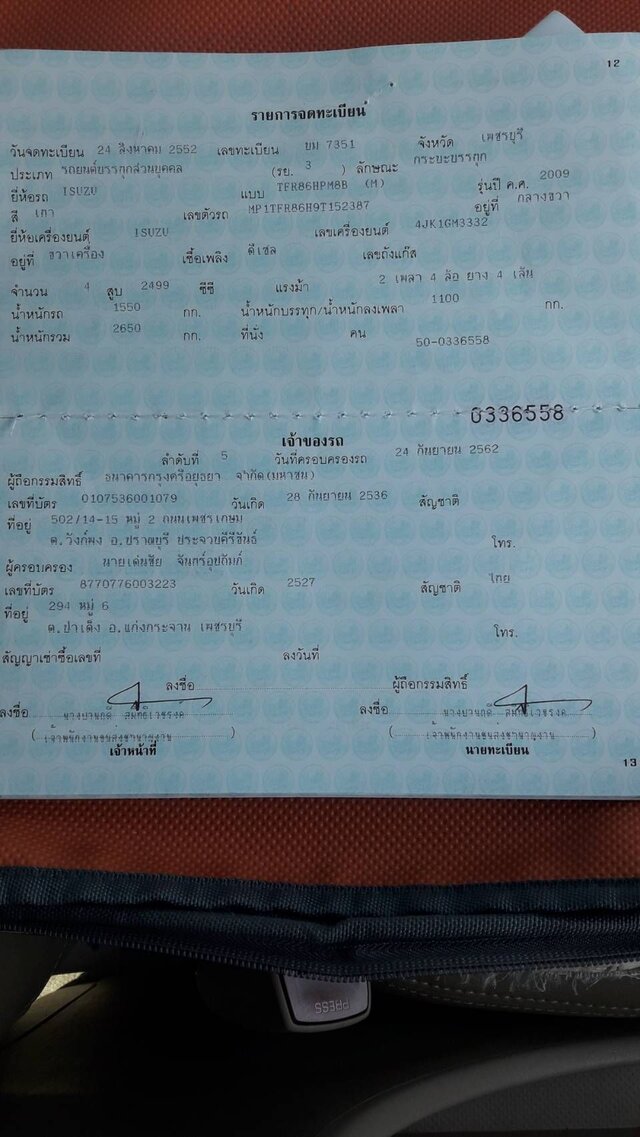 12
รายการจดทะเบียน
วันจดทะเบียน 24 สิงหาคม 2552 เลขทะเบียน บม 7351 จังหวัด เพชรบุรี
ประเภท รถยนต์บรรทุกส่วนบุคคล (รย. 3 ) ลักษณะ กระบะบรรทุก
ยี่ห้อรถ ISUZU แบบ TFR86HPM8B (M) รุ่นปี ค.ศ. 2009
สี เทา เลขตัวรถ MP1TFR86H9T152387 อยู่ที่ กลางขวา
ยี่ห้อเครื่องยนต์ ISUZU เลขเครื่องยนต์ 4JK1GM3332
อยู่ที่ ขวาเครื่อง เชื้อเพลิง ดีเซล เลขถังแก๊ส
จำนวน 4 สูบ 2499 ซีซี แรงม้า 2 เพลา 4 ล้อ ยาง 4 เส้น
น้ำหนักรถ 1550 กก. น้ำหนักบรรทุก/น้ำหนักลงเพลา 1100 กก.
น้ำหนักรวม 2650 กก. ที่นั่ง คน 50-0336558
0336558
เจ้าของรถ
ลำดับที่ 5 วันที่ครอบครองรถ 24 กันยายน 2562
ผู้ถือกรรมสิทธิ์ ธนาคารกรุงศรีอยุธยา จำกัด(มหาชน)
เลขที่บัตร 0107536001079 วันเกิด 28 กันยายน 2536 สัญชาติ
ที่อยู่ 502/14-15 หมู่ 2 ถนนเพชรเกษม
ต.วังก์พง อ.ปราณบุรี ประจวบคีรีขันธ์ โทร.
ผู้ครอบครอง นายเด่นชัย จันทร์อุปถัมภ์
เลขที่บัตร 8770776003223 วันเกิด 2527 สัญชาติ ไทย
ที่อยู่ 294 หมู่ 6
ต.ป่าเด็ง อ.แก่งกระจาน เพชรบุรี โทร.
สัญญาเช่าซื้อเลขที่ ลงวันที่
ลงชื่อ ผู้ถือกรรมสิทธิ์
ลงชื่อ ลงชื่อ
( เจ้าพนักงานขนส่งชำนาญงาน ) ( เจ้าพนักงานขนส่งชำนาญงาน )
เจ้าหน้าที่ นายทะเบียน
13
PRESS